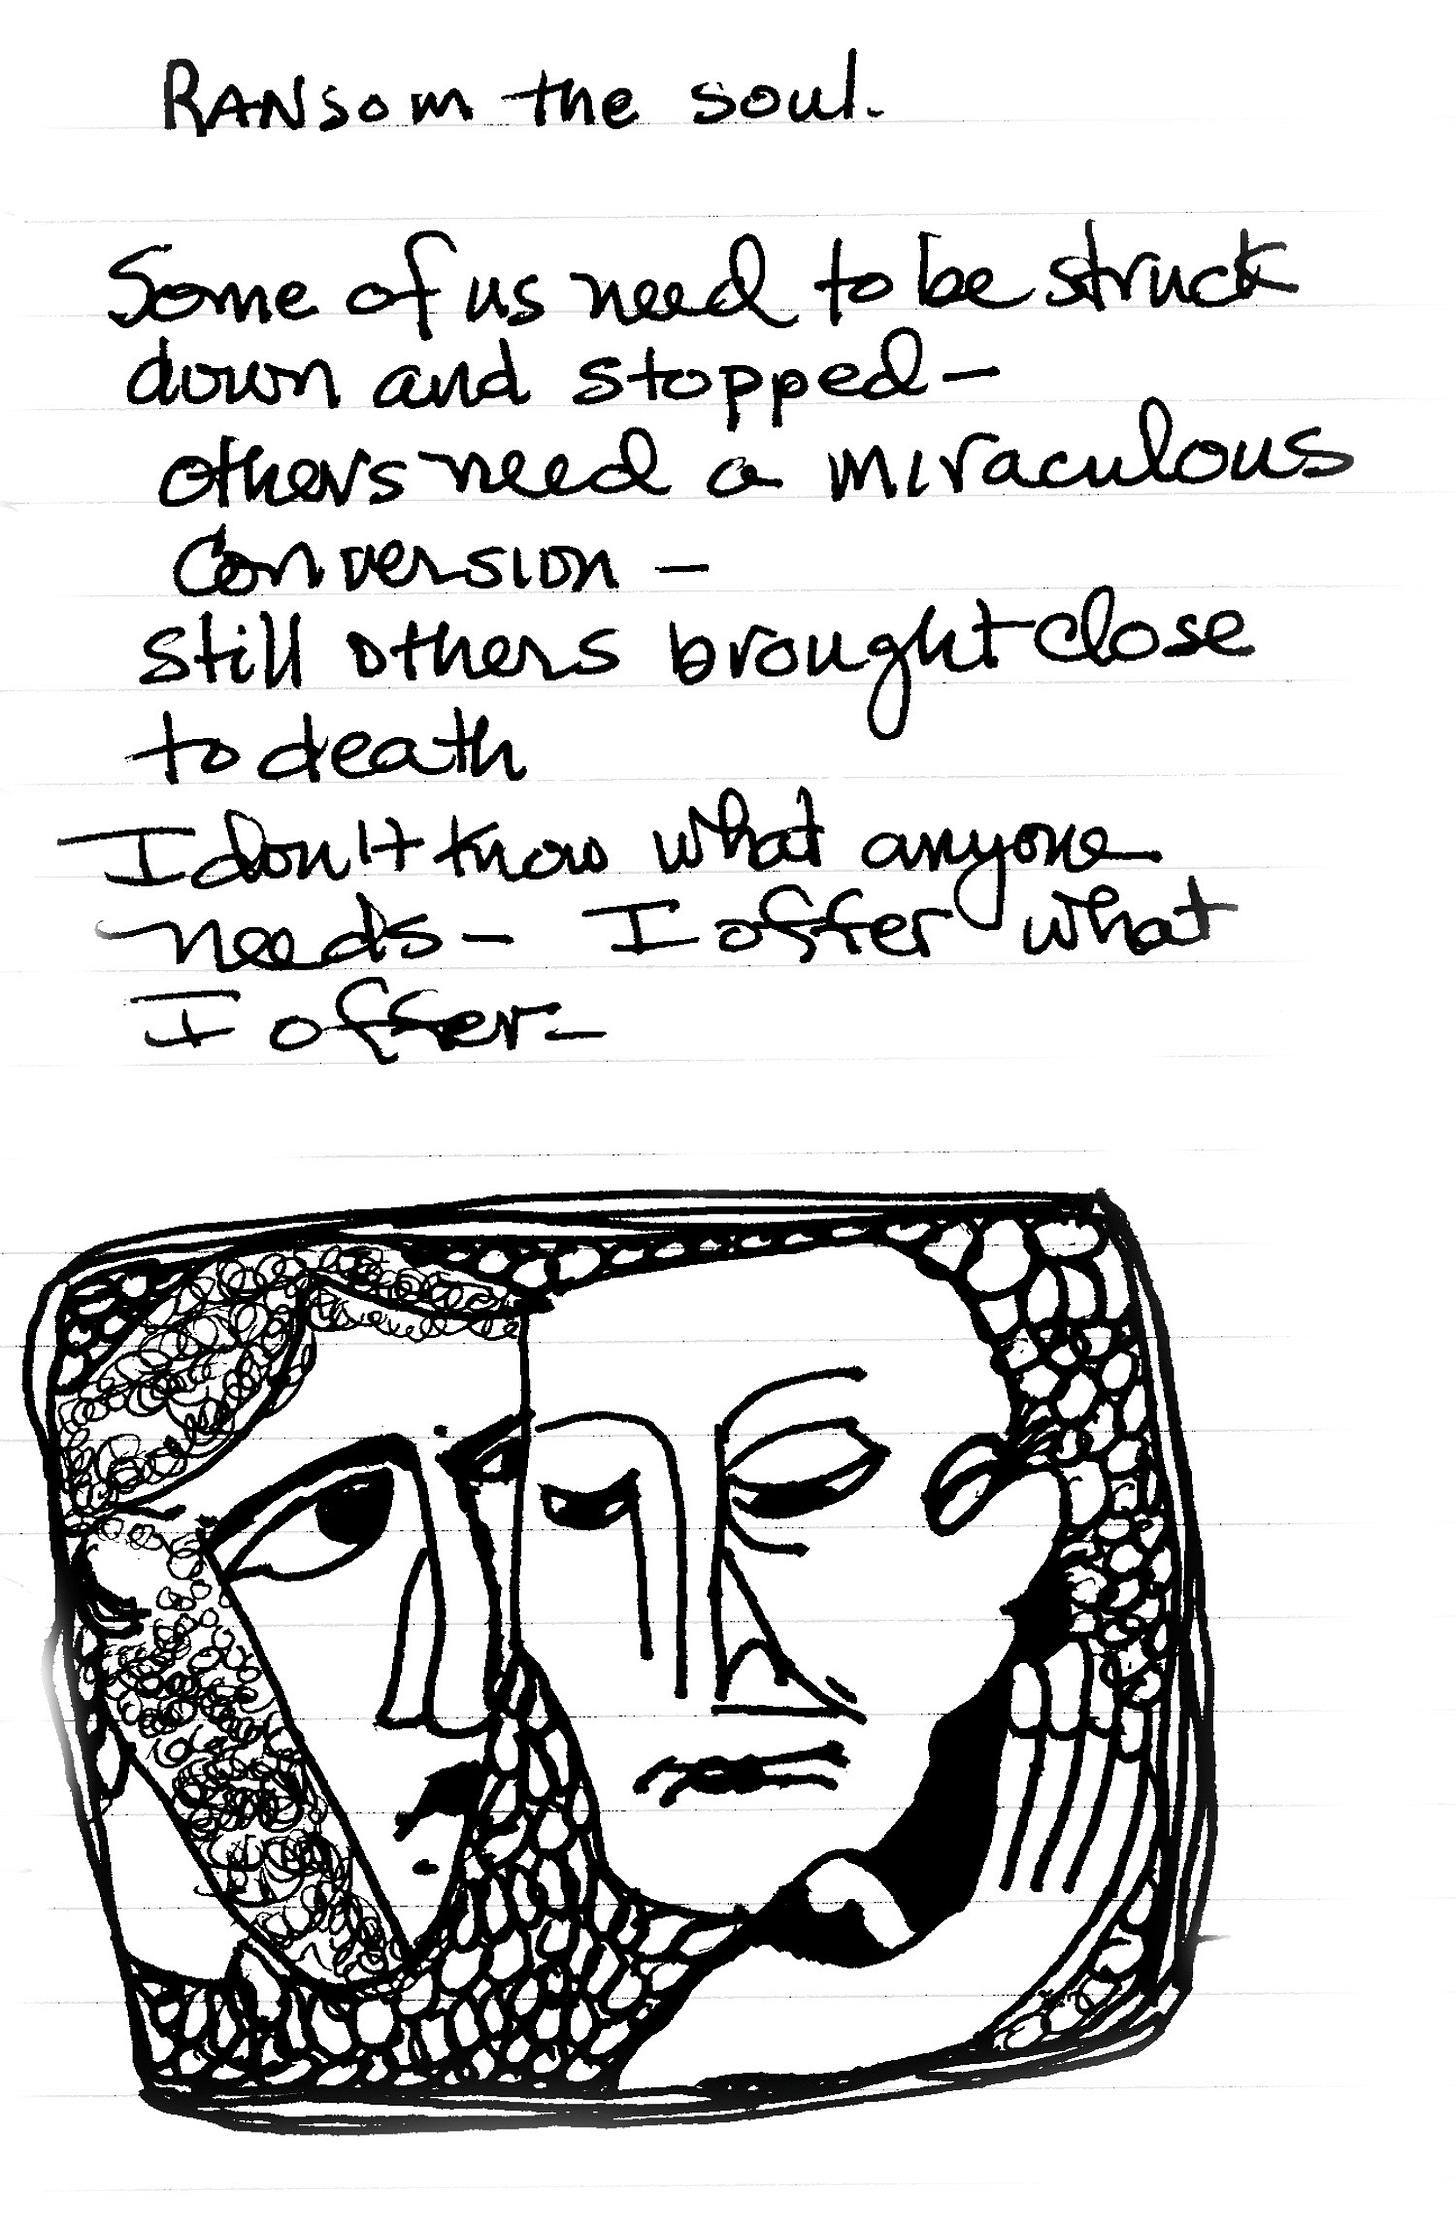 RANSOM the soul.
Some of us need to be struck
down and stopped-
others need a miraculous
Conversion -
still others brought close
to death
I don't know what anyone
needs - I offer what
I offer-